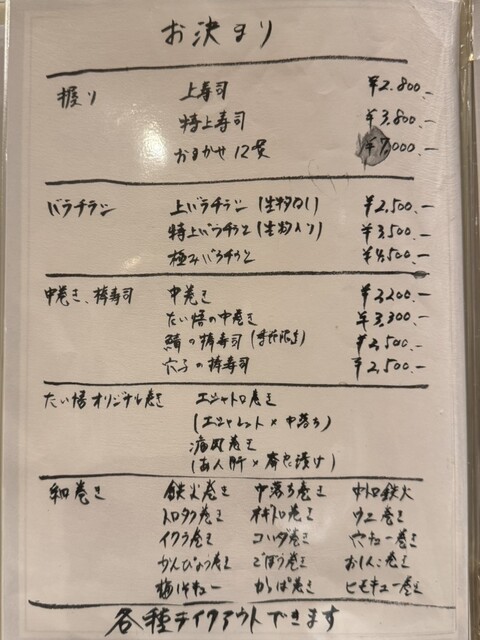 お決まり
握り 上寿司 ¥2.800.-
特上寿司 ¥3.800.-
おまかせ 12貫 ¥7,000.-
バラチラシ 上バラチラシ (生物なし) ¥2,500.-
特上バラチラシ (生物入り) ¥3,500.-
極みバラチラシ ¥4,500.-
中巻き、棒寿司 中巻き ¥2200.-
たい悟の中巻き ¥3,300.-
鯖の棒寿司 ¥2,500.-
穴子の棒寿司 ¥2,500.-
たい悟オリジナル巻き エシャトロ巻き
(エシャレット×中落ち)
痛風巻き
(あん肝×奈良漬け)
細巻き 鉄火巻き 中落ち巻き 中トロ鉄火
トロタク巻き ネギトロ巻き ウニ巻き
イクラ巻き コハダ巻き 穴キュー巻き
かんぴょう巻き ごぼう巻き おしんこ巻き
梅シソキュー かっぱ巻き ヒモキュー巻き
各種テイクアウトできます